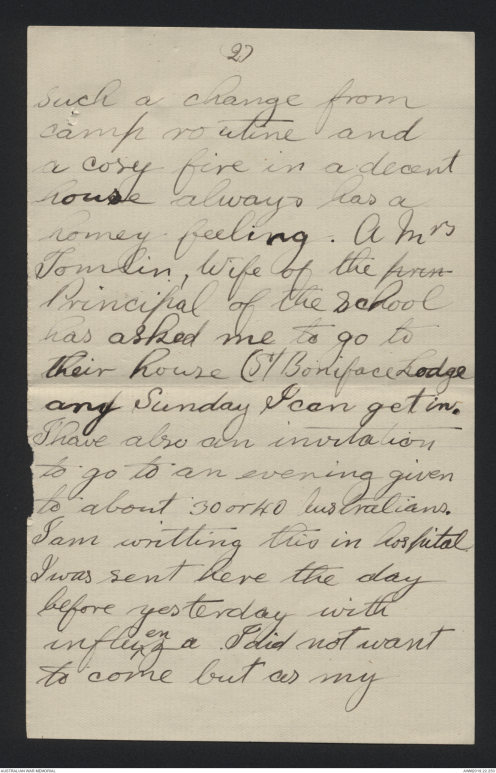 (2)
such a change from
camp routine and
a cosy fire in a decent
house always has a
homey feeling. A Mrs
Tomlin, Wife of the prin
Principal of the School
has asked me to go to
their house (St Boniface Lodge
any Sunday I can get in.
I have also an invitation
to go to an evening given
to about 30 or 40 Australians.
I am writting this in hospital
I was sent here the day
before yesterday with
influenza. I did not want
to come but as my
AUSTRALIAN WAR MEMORIAL